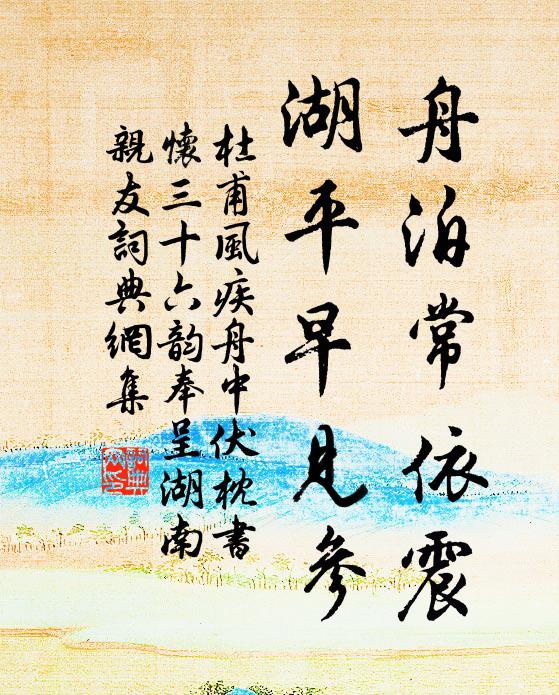 舟泊常依震
湖平早見參
杜甫風疾舟中伏枕書
懷三十六韵奉呈湖南
親友詞典網集